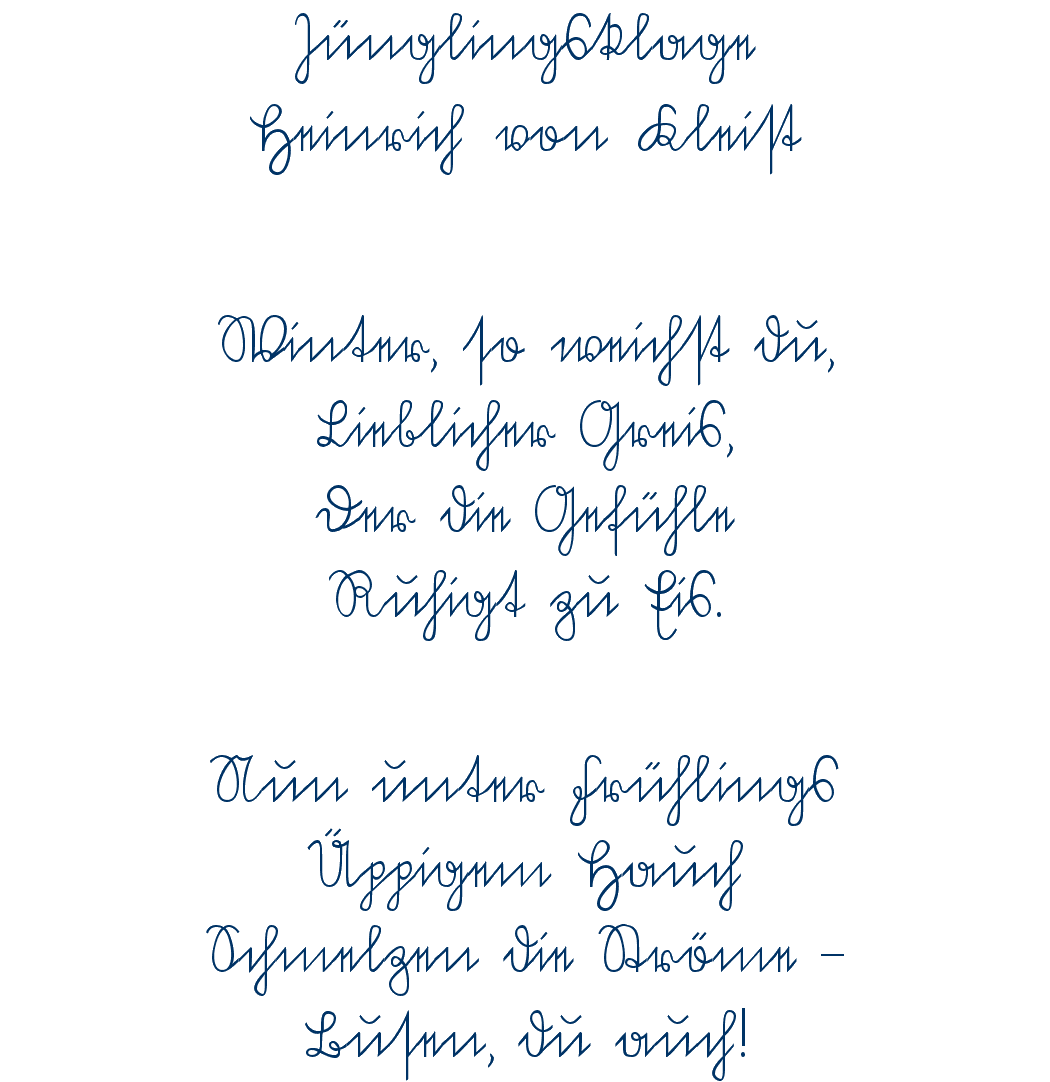 Jünglingsklage
Heinrich von Kleist
Winter, so weichst du,
Lieblicher Greis,
Der die Gefühle
Ruhigt zu Eis.
Nun unter Frühlings
Üppigem Hauch
Schmelzen die Ströme –
Busen, du auch!